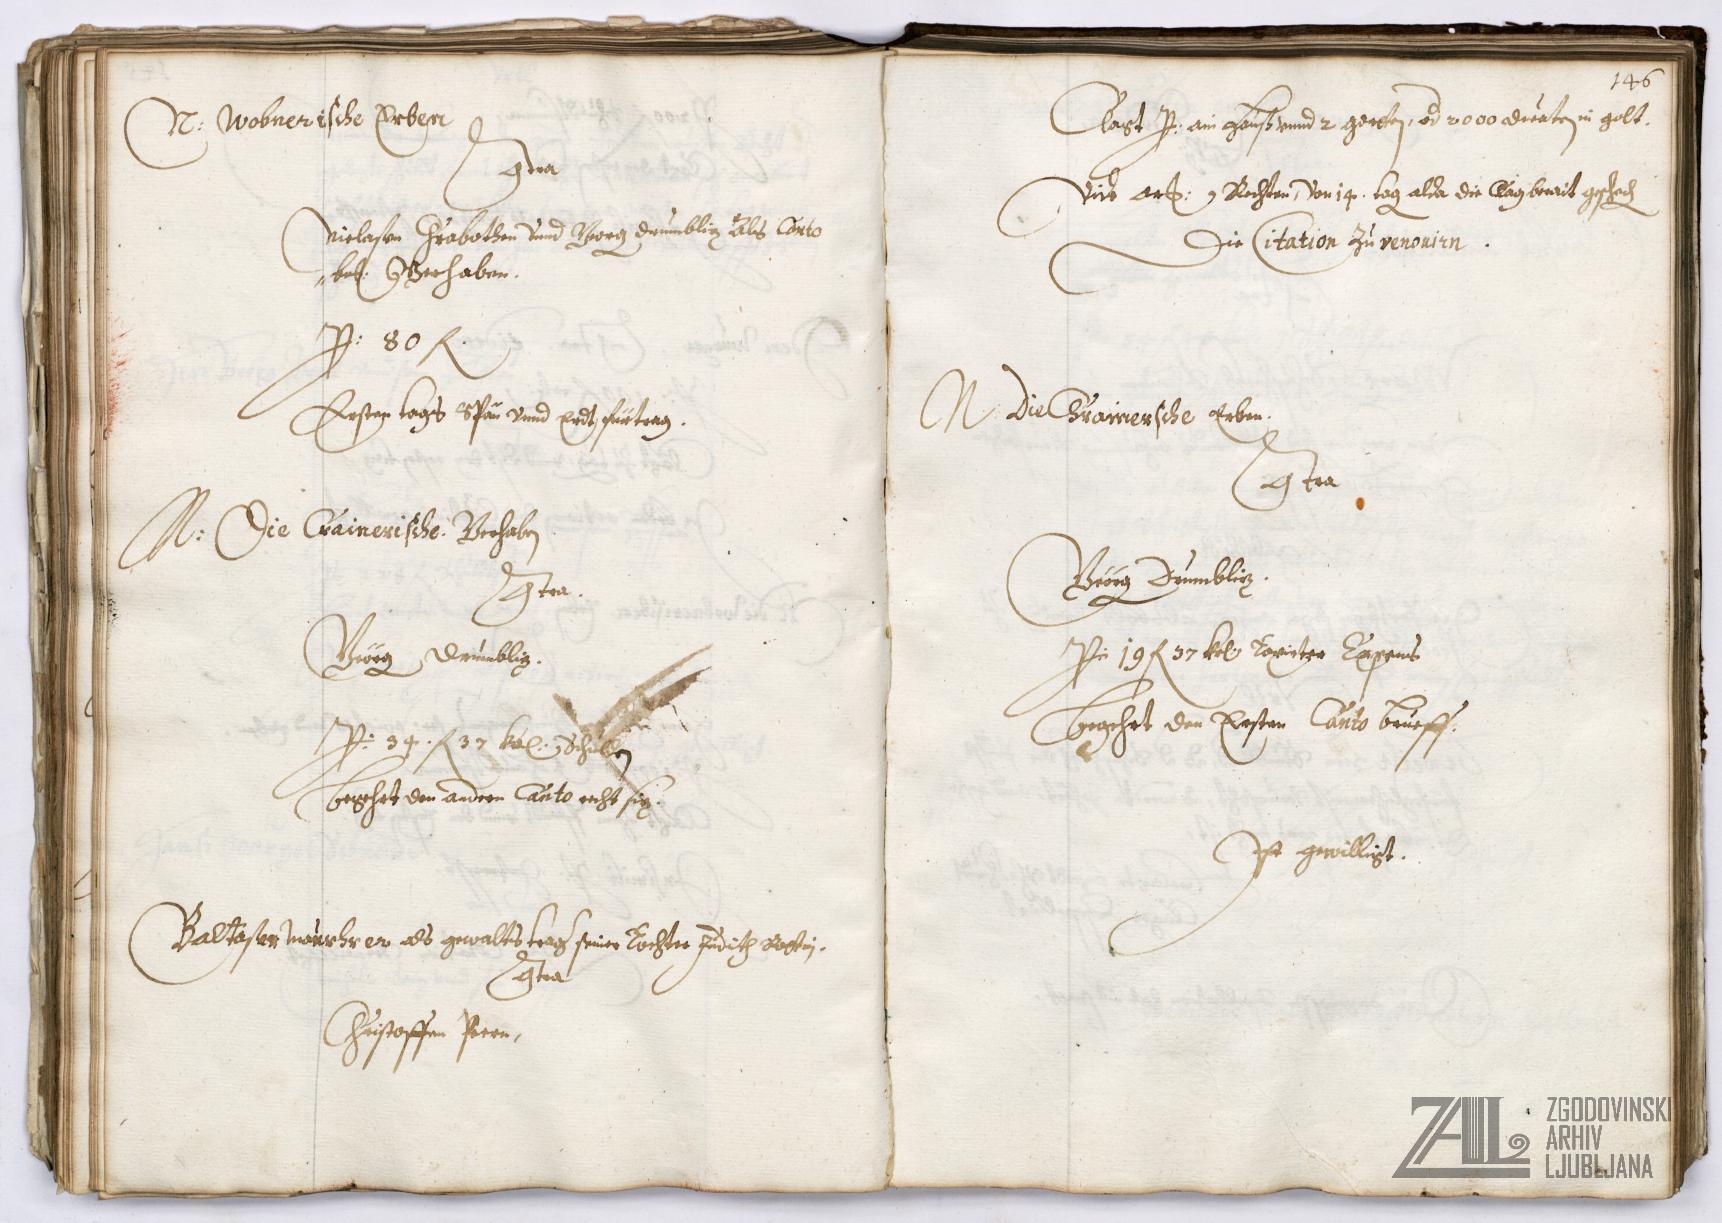 N: Wobnerische Erben
Contra
Niclasen Hrabathen vnnd Georg Drumbliz Als Canto
Gerhaben.
Pr: 80 fl.
Ersten tags vnnd fürtrag.
N: Die Crainerische Gerhaben
Contra.
Geörg Drumbliz.
Pr: 34 fl 37 kr: Schulden
begehrt den andern Canto
Balthasar Maurhrer als gewaltstrager seiner Tochter Judith
Contra
Christoffen Peern,
146
Clagt Pr: ain Hauß vnnd 2 gärten, 2000 Ducaten in golt.
Rechten, von 14 tag alda die Clag
Die Citation Zu renouirn.
N: Die Crainerische Erben.
Contra
Geörg Drumbliz.
Pr: 19 fl 37 kr: Taxirter Expens
begehrt den Ersten Canto brueff.
Ist gewilligt.
ZAL
ZGODOVINSKI
ARHIV
LJUBLJANA